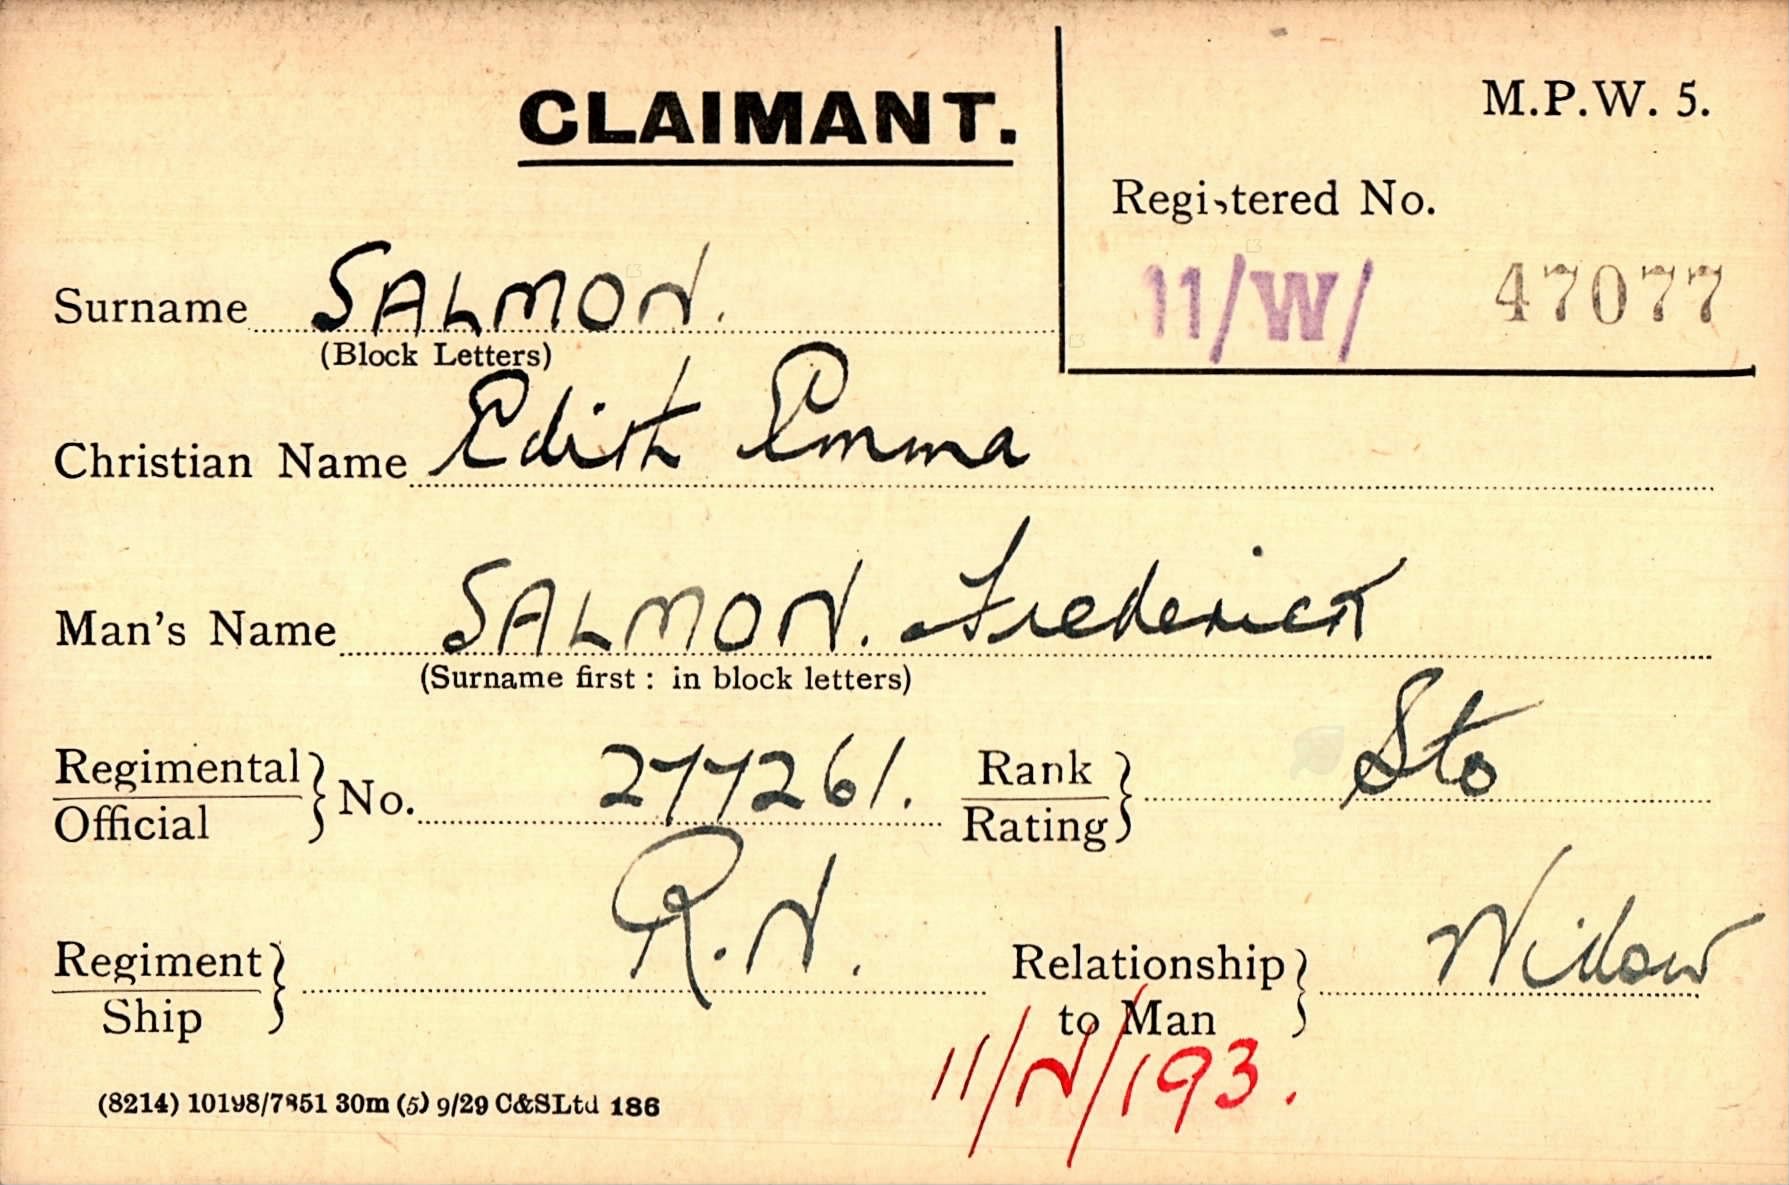 CLAIMANT.
M.P.W. 5.
Registered No.
11/W/ 47077
Surname SALMON.
(Block Letters)
Christian Name Edith Emma
Man's Name SALMON. Frederick
(Surname first : in block letters)
Regimental
Official } No. 277261. Rank
Rating } Sto
Regiment
Ship } R.N. Relationship
to Man } Widow
11/N/193.
(8214) 10198/7851 30m (5) 9/29 C&SLtd 186